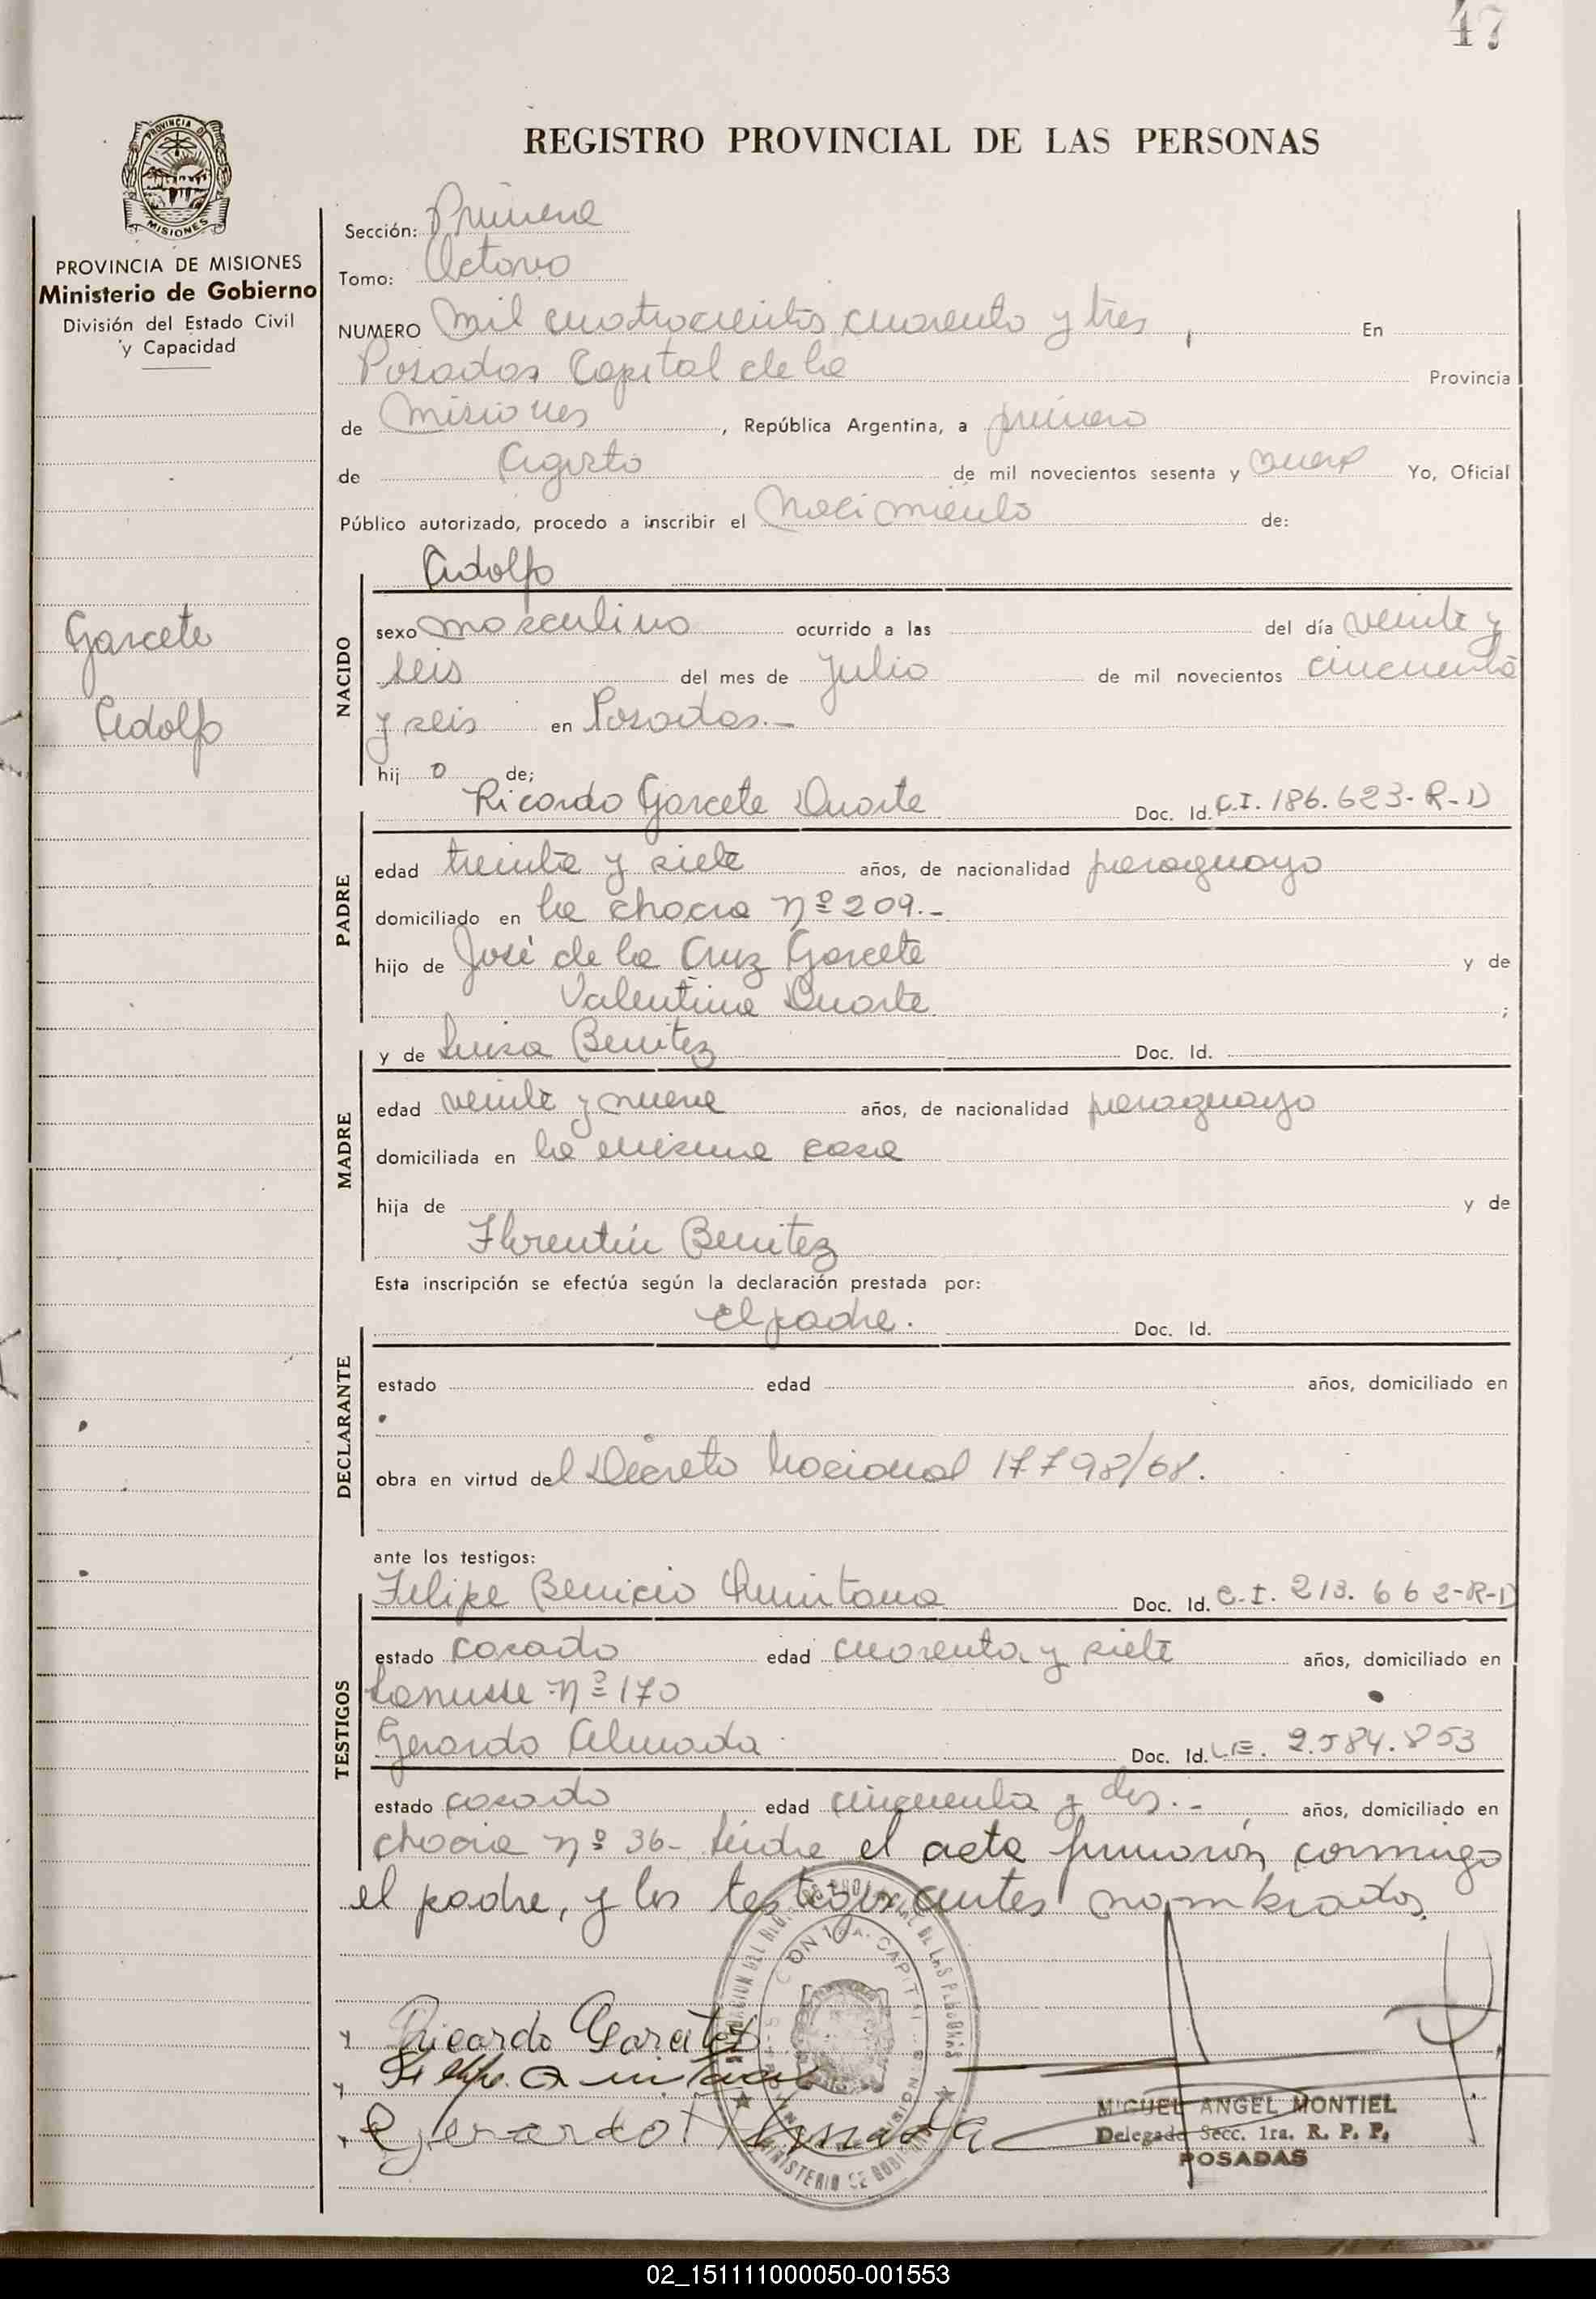 47
REGISTRO PROVINCIAL DE LAS PERSONAS
PROVINCIA DE MISIONES
PROVINCIA DE MISIONES
Ministerio de Gobierno
División del Estado Civil
y Capacidad
Garcete
Adolfo
Sección: Primera
Tomo: Octavo
NUMERO mil cuatrocientos cuarenta y tres, En
Posadas Capital de la Provincia
de Misiones, República Argentina, a primero
de Agosto de mil novecientos sesenta y nueve Yo, Oficial
Público autorizado, procedo a inscribir el Nacimiento de:
Adolfo
NACIDO
sexo masculino ocurrido a las del día veinte y
seis del mes de Julio de mil novecientos cincuenta
y seis en Posadas.-
hij o de;
Ricardo Garcete Duarte Doc. Id. C.I. 186.623-R-D
PADRE
edad treinta y siete años, de nacionalidad paraguayo
domiciliado en la chacra Nº 209.-
hijo de José de la Cruz Garcete y de
Valentina Duarte ;
y de Luisa Benitez Doc. Id.
MADRE
edad veinte y nueve años, de nacionalidad paraguayo
domiciliada en la misma casa
hija de y de
Florentín Benitez
Esta inscripción se efectúa según la declaración prestada por:
el padre. Doc. Id.
DECLARANTE
estado edad años, domiciliado en
obra en virtud del Decreto Nacional 17798/68.
ante los testigos:
Felipe Benicio Quintana Doc. Id. C.I. 213.662-R-D
TESTIGOS
estado casado edad cuarenta y siete años, domiciliado en
Lanusse Nº 170
Gerardo Almada Doc. Id. L.E. 2.584.853
estado casado edad cincuenta y dos.- años, domiciliado en
chacra Nº 36- leída el acta firmarón conmigo
el padre, y los testigos antes nombrados.
Ricardo Garcete
Felipe Quintana
Gerardo Almada
MIGUEL ANGEL MONTIEL
Delegado Secc. 1ra. R. P. P.
POSADAS
02_151111000050-001553